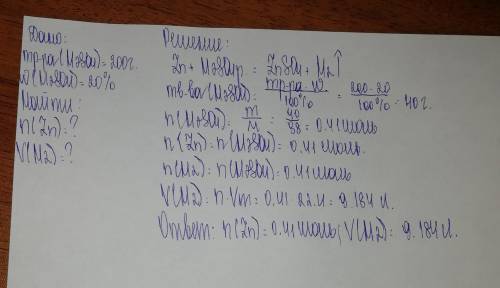 Дано:
mр-ра(H2SO4)=200г.
ω(H2SO4)=20%
Найти:
n(Zn)-?
V(H2)-?
Решение:
Zn + H2SO4р. = ZnSO4 + H2↑
mв-ва(H2SO4) = mр-ра·ω / 100% = 200·20 / 100% = 40г.
n(H2SO4) = m/M = 40/98 = 0.41моль
n(Zn)=n(H2SO4)=0.41моль.
n(H2)=n(H2SO4)=0.41моль
V(H2)=n·Vm=0.41·22.4=9.184л.
Ответ: n(Zn)=0.41моль; V(H2)=9.184л.